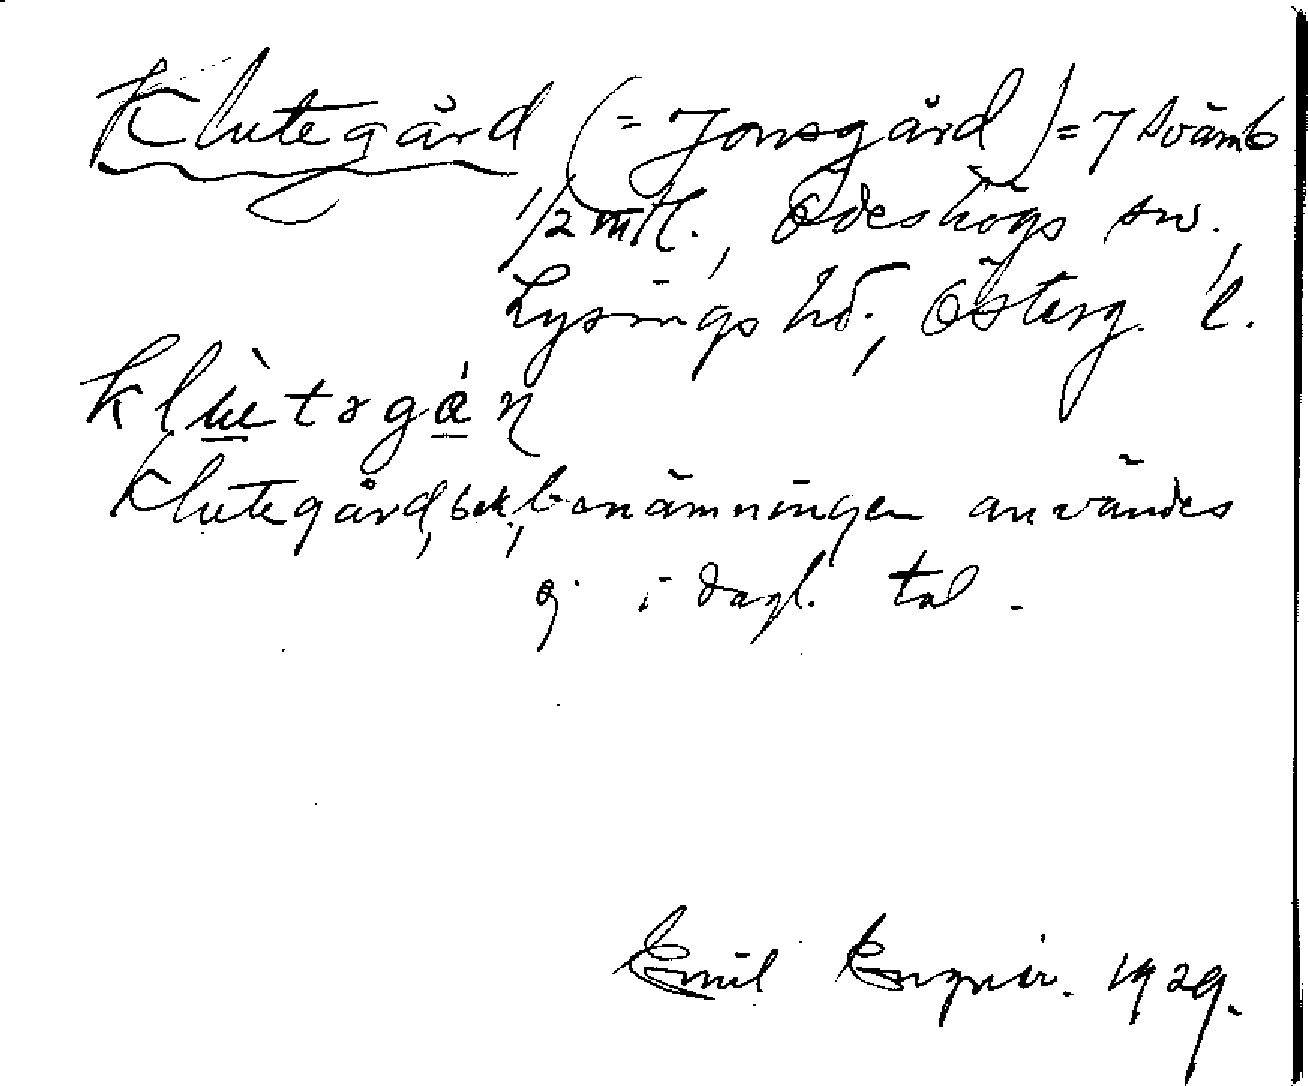 Klutegård (= Jonsgård) = 7 Svämb
1/2 mtl., Ödeshögs sn.,
Lysings hd., Österg. l.
Klutegård, bek., benämningen användes
ej i dagl. tal.
Emil 1929.